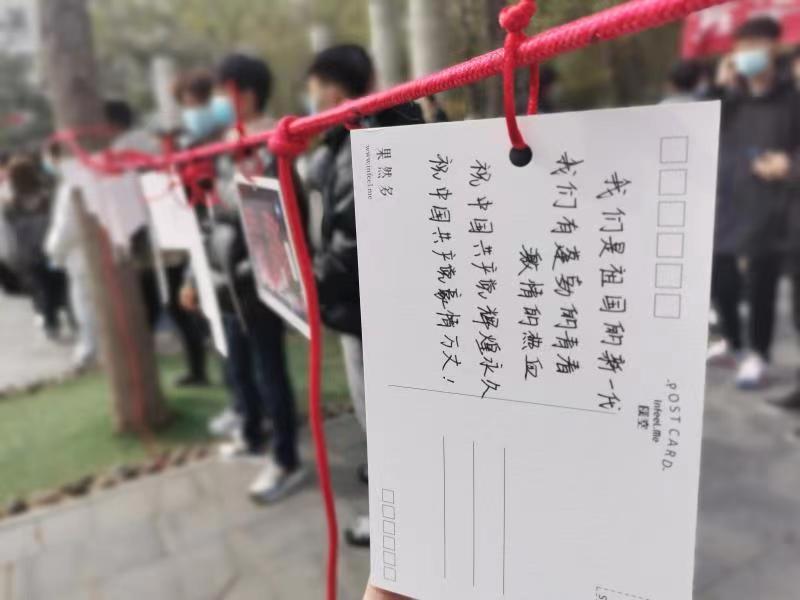 POST CARD.
infeel.me
我们是祖国的新一代
我们有蓬勃的青春
激情的热血
祝中国共产党辉煌永久
祝中国共产党豪情万丈！
果然多
www.infeel.me